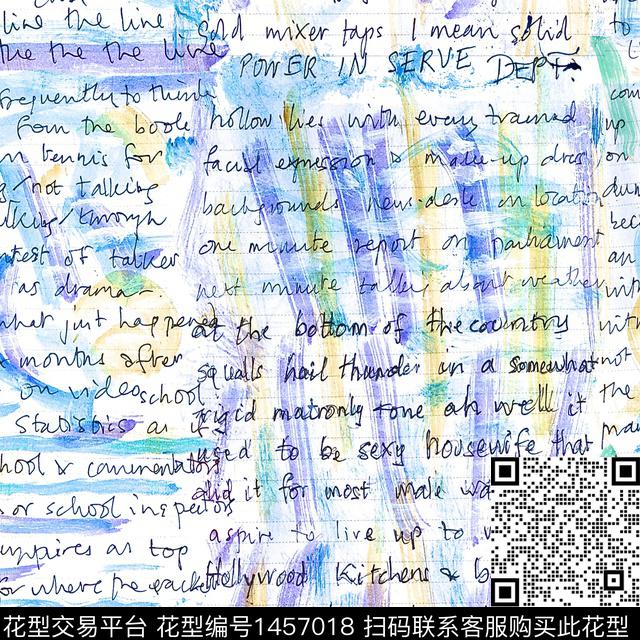 line the line
the the the line
frequently to think
from the book
tennis for
/not talking
talking/through
of talker
as drama.
what just happened
months after
on video school
statistics as if
school & commentators
or school inspectors
umpires as top
for where the
Gold mixer taps I mean solid
POWER IN SERVE DEPT.
hollow lies with every trained
facial expression & make-up dress
backgrounds news-desk on location
one minute report on parliament
next minute talks about weather
at the bottom of the country
squalls hail thunder in a somewhat
rigid matronly tone ah well it
used to be sexy housewife that
did it for most male
aspire to live up to
Hollywood Kitchens &
to
up
on
an
not
the
花型交易平台 花型编号1457018 扫码联系客服购买此花型